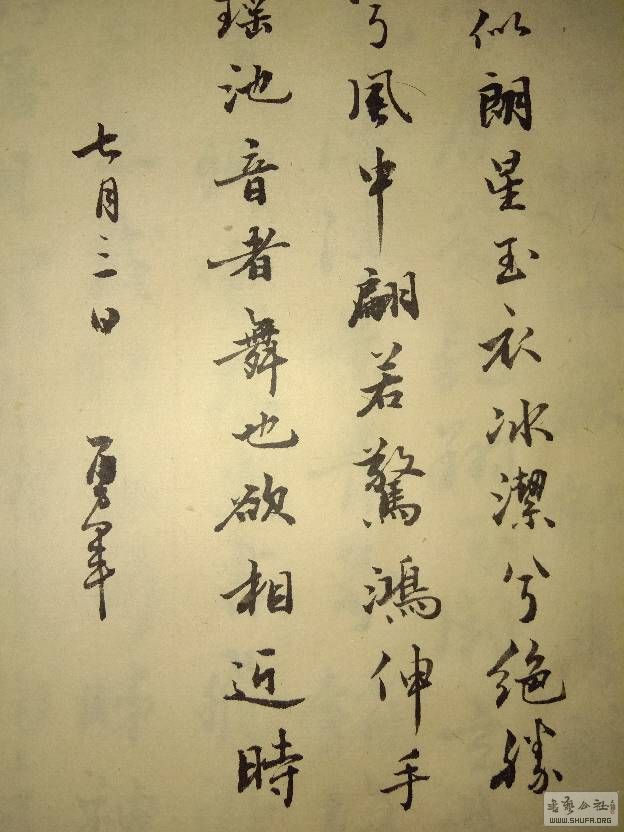 似朗星玉衣冰潔兮絕勝
兮風中翩若驚鴻伸手
瑶池音者舞也欲相近時
七月三日
WWW.SHUFA.ORG